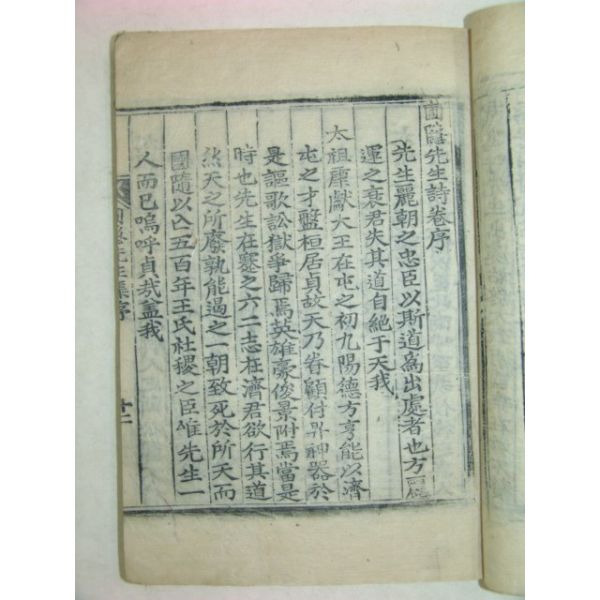 圃隱先生詩卷序
先生麗朝之忠臣以斯道爲出處者也方麗
運之衰君失其道自絶于天我
太祖康獻大王在屯之初九陽德方亨能以濟
屯之才盤桓居貞故天乃眷顧付畀神器於
是謳歌訟獄爭歸焉英雄豪俊景附焉當是
時也先生在蹇之六二志在濟君欲行其道
然天之所廢孰能遏之一朝致死於所天而
國隨以亡五百年王氏社稷之臣唯先生一
人而已嗚呼貞哉盖我
圃隱先生集序